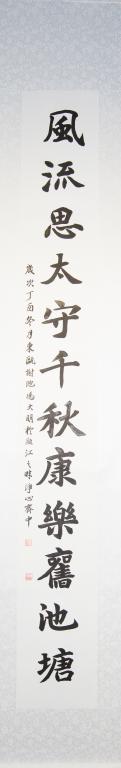 風流思太守千秋康樂舊池塘
歲次丁酉冬月東甌樹池馮大明於甌江之畔淨心齋中